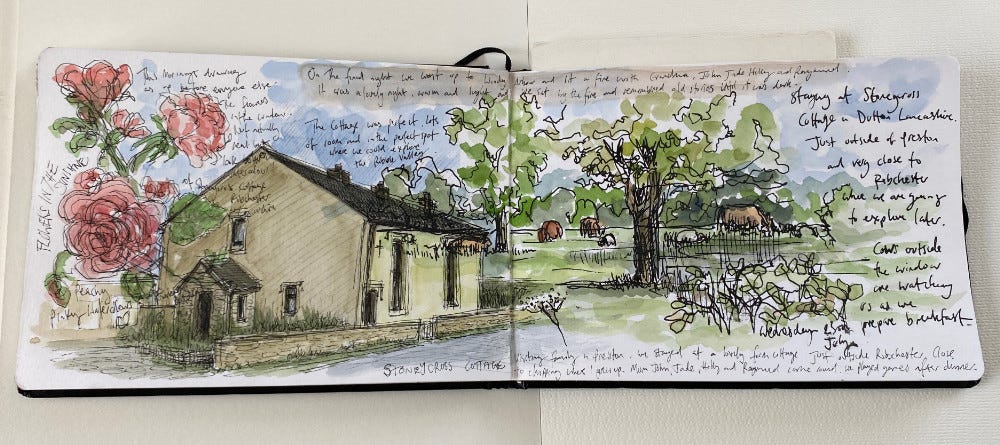 This morning's drawing
as is before everyone else
The flowers
in the window.
of Stoneycross Cottage
Ribchester
FLOWERS IN THE
Peachy
On the final night we went up to and lit a fire with Grandma, John, Jade, Holly and Raymond
It was a lovely night, warm and light we sat by the fire and remembered old stories until it was dark.
The Cottage was perfect, lots
of room and in the perfect spot
where we could explore
the Ribble Valley
Staying at Stoneycross
Cottage in Dutton Lancashire.
Just outside of Preston
and very close to
Ribchester
where we are going
to explore later.
Cows outside
the window
are watching
us as we
prepare breakfast-
Wednesday
July
STONEYCROSS COTTAGE
Visiting family in Preston, we stayed at a lovely farm cottage just outside Ribchester. Close
to Chipping where I grew up. Mum, John, Jade, Holly and Raymond came round, we played games after dinner.